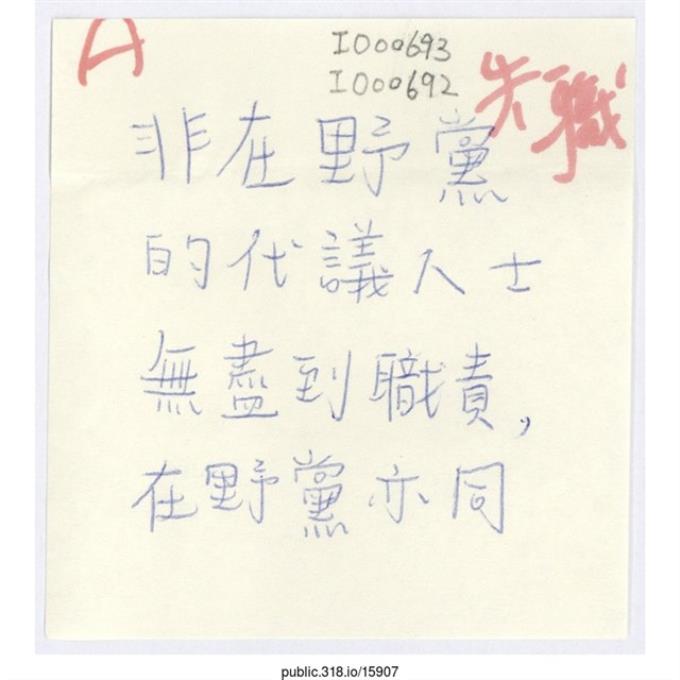 A
I000693
I000692
失職
非在野黨
的代議人士
無盡到職責,
在野黨亦同
public.318.io/15907